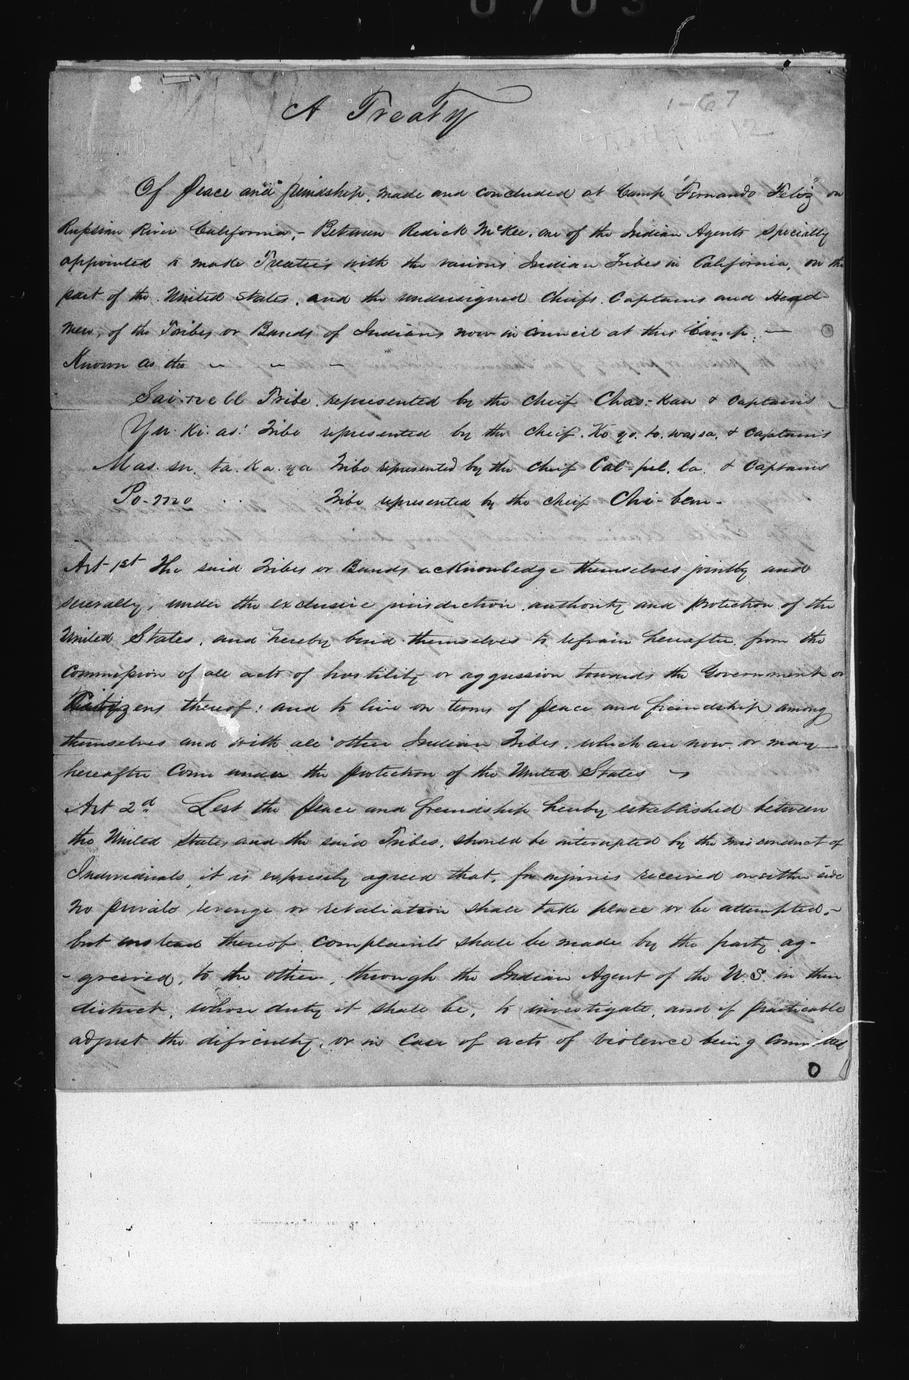 A Treaty
1-67
12
Of peace and friendship, made and concluded at Camp "Fernando Feliz" on
Russian River California,- Between Redick McKee, one of the Indian Agents specially
appointed to make Treaties with the various Indian Tribes in California, on the
part of the United States, and the undersigned Chiefs, Captains and Head
men, of the Tribes or Bands of Indians now in council at this Camp, —
Known as the
Sai-nell Tribe, represented by the Cheif Chas-Kau & Captains
Yu-Ki-as' Tribe represented by the Cheif, Ko. yo. to. wassa, & Captains
Mas. su. ta. ka. ya Tribe represented by the Cheif Cal-pel. la. & Captains
Po-mo . . Tribe represented by the Cheif Chi-bem-
Art 1st The said Tribes or Bands acknowledge themselves jointly and
severally, under the exclusive jurisdiction, authority and protection of the
United States, and hereby bind themselves to refrain hereafter, from the
commission of all acts of hostility or aggression towards the Government or
Citizens thereof; and to live on terms of peace and freindship among
themselves and with all other Indian Tribes, which are now or may
hereafter Come under the protection of the United States
Art 2d Lest the peace and freindship hereby established between
the United States and the said Tribes, should be interrupted by the misconduct of
Individuals, it is expressly agreed that, for injuries received on either side
no private revenge or retaliation shall take place or be attempted,-
but instead thereof complaints shall be made by the party ag-
-greived, to the other, through the Indian Agent of the U.S. in their
district, whose duty it shall be, to investigate, and if practicable
adjust the difficulty, or in Case of acts of violence being Committed
0